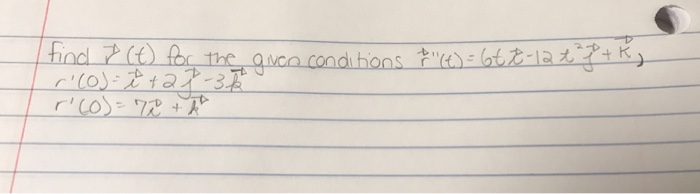 find r⃗(t) for the given conditions r⃗''(t) = 6t i⃗ - 12t² j⃗ + k⃗,
r'(0) = i⃗ + 2j⃗ - 3k⃗
r'(0) = 7i⃗ + k⃗